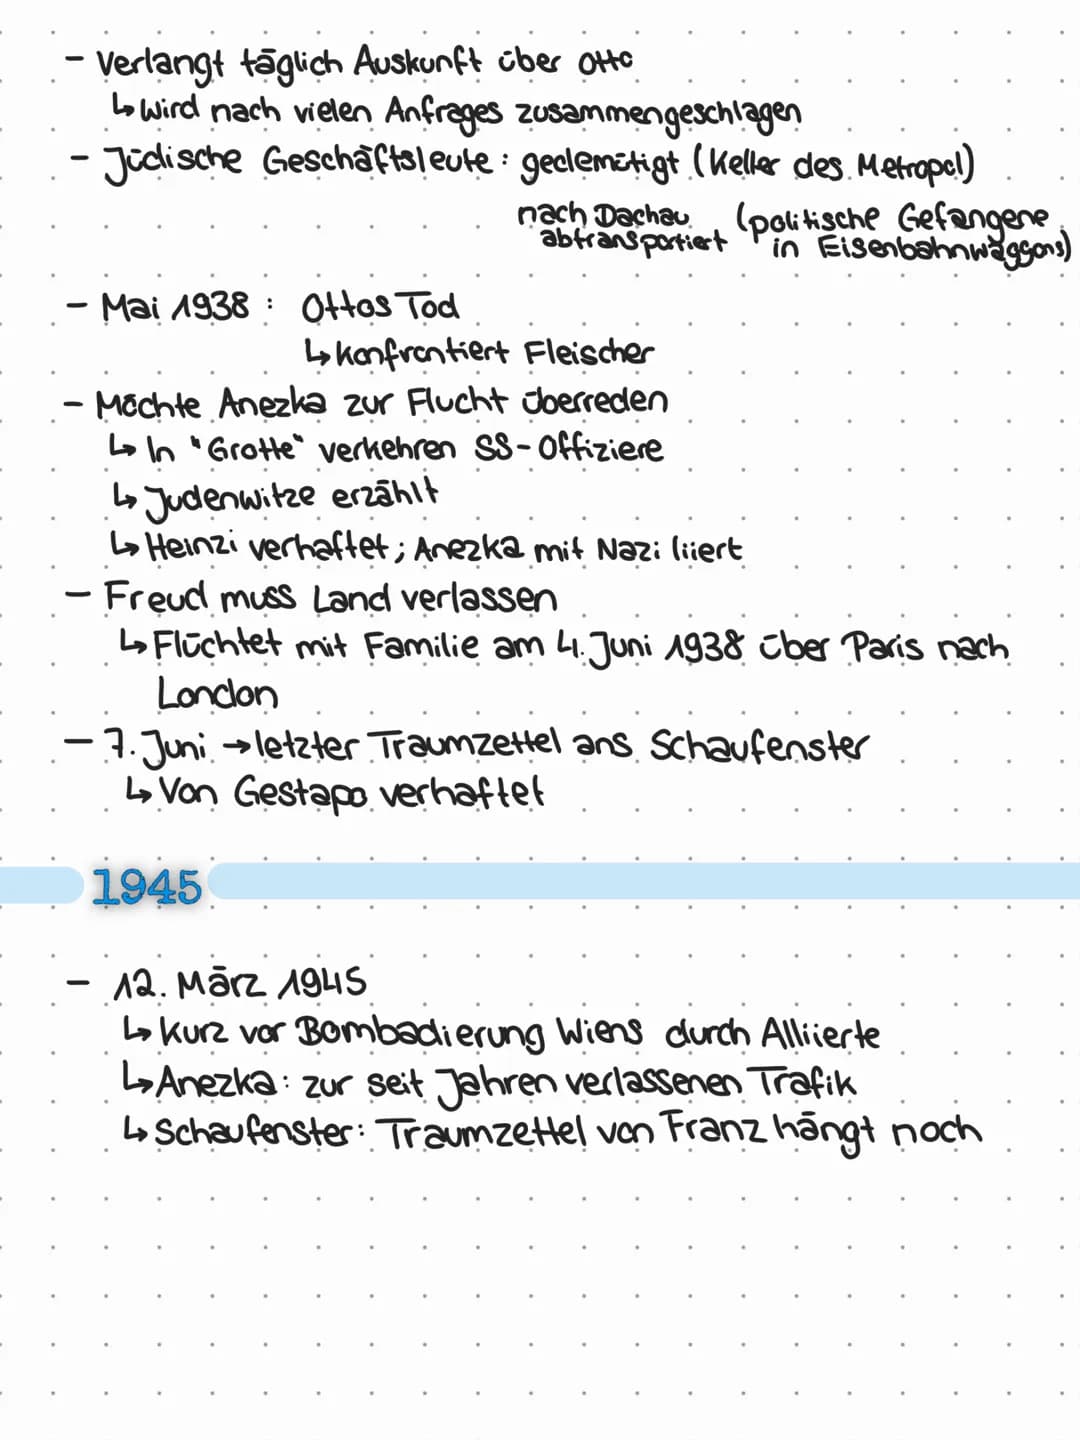 - Verlangt täglich Auskunft über Otto
↳ Wird nach vielen Anfrages zusammengeschlagen
- Jüdische Geschäftsleute : gedemütigt (Keller des Metropol)
nach Dachau (politische Gefangene
abtransportiert in Eisenbahnwaggons)
- Mai 1938 : Ottos Tod
↳ konfrontiert Fleischer
- Möchte Anezka zur Flucht überreden
↳ In "Grotte" verkehren SS-Offiziere
↳ Judenwitze erzählt
↳ Heinzi verhaftet; Anezka mit Nazi liiert
- Freud muss Land verlassen
↳ Flüchtet mit Familie am 4. Juni 1938 über Paris nach
London
- 7. Juni → letzter Traumzettel ans Schaufenster
↳ Von Gestapo verhaftet
1945
- 12. März 1945
↳ kurz vor Bombadierung Wiens durch Alliierte
↳ Anezka: zur seit Jahren verlassenen Trafik
↳ Schaufenster: Traumzettel von Franz hängt noch